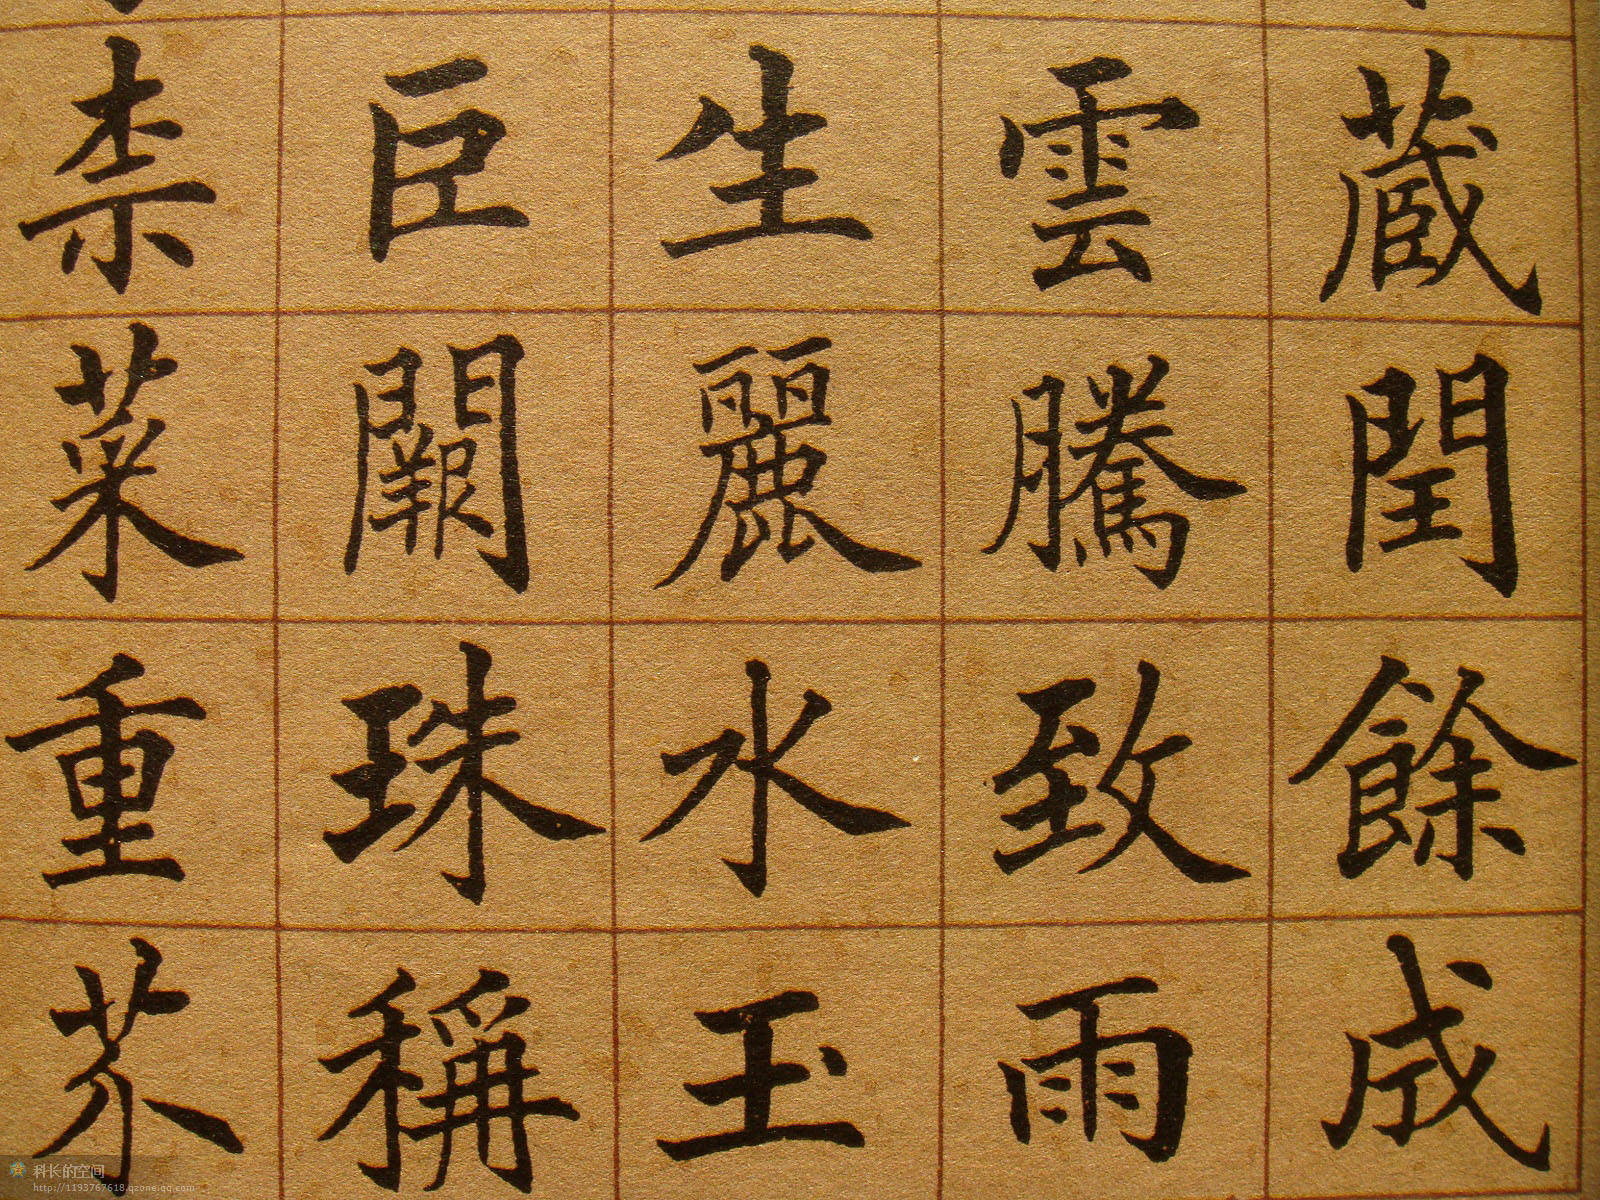 藏閏餘成
雲騰致雨
生麗水玉
巨闕珠稱
柰菜重芥
科长的空间
http://1193767618.qzone.qq.com